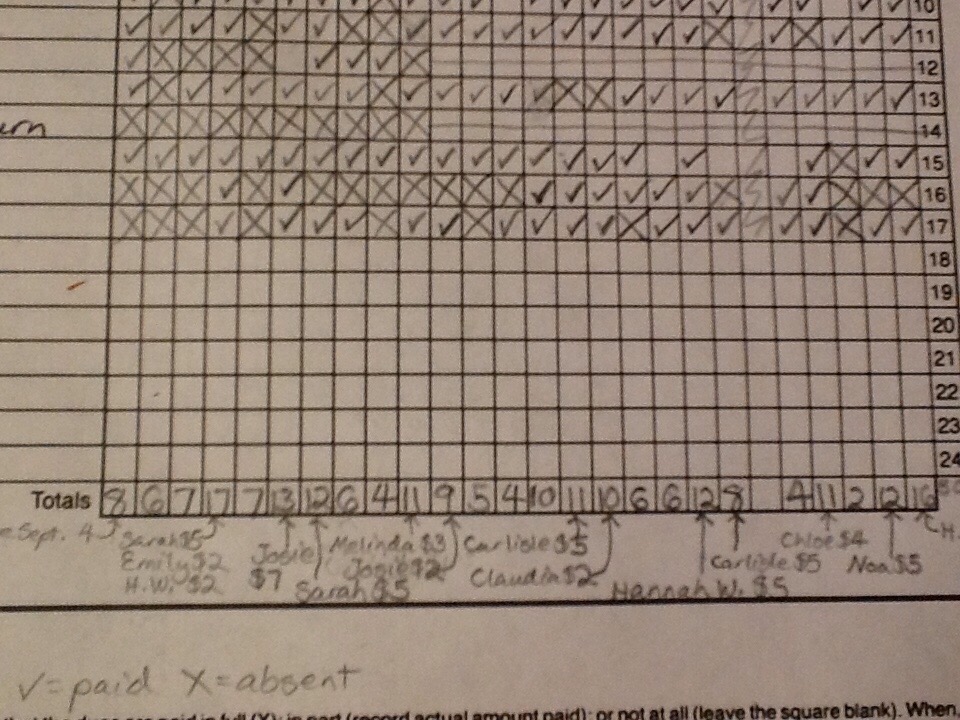 10
11
12
13
ern 14
15
16
17
18
19
20
21
22
23
24
Totals 8 6 7 17 7 13 12 6 4 11 9 5 4 10 11 10 6 6 12 8 4 11 2 12 16
e Sept. 4 Sarah $5 Josie Melinda $3 Carlisle $5 Chloe $4 H.
Emily $2 $7 Josie $2 Claudia $2 Carlisle $5 Noa $5
H.W. $2 Sarah $5 Hannah W. $5
✓=paid X=absent
in part (record actual amount paid); or not at all (leave the square blank). When